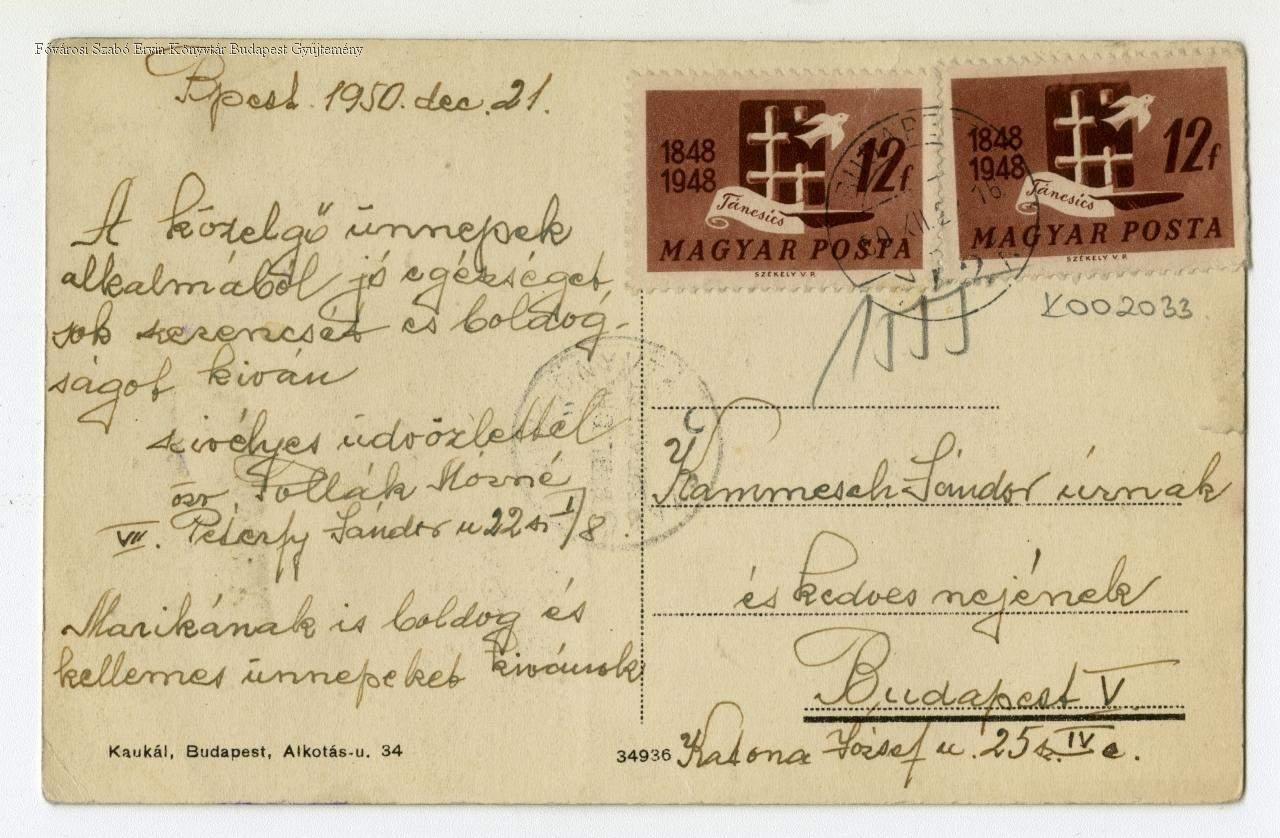 Fővárosi Szabó Ervin Könyvtár Budapest Gyűjtemény
Bpest. 1950. dec. 21.
A közelgő ünnepek
alkalmából jó egészséget
sok szerencsét és boldog-
ságot kiván
szivélyes üdvözlettel
özv Pollák Mórné
VII. Péterfy Sándor u 22 sz I/8.
Marikának is boldog és
kellemes ünnepeket kivánok
Kaukál, Budapest, Alkotás-u. 34
34936
1848
1948
12f
Táncsics
MAGYAR POSTA
SZÉKELY V.P.
1848
1948
12f
Táncsics
MAGYAR POSTA
SZÉKELY V.P.
Y002033
Kammesch Sándor úrnak
és kedves nejének
Budapest V.
Katona József u. 25 sz. IV e.